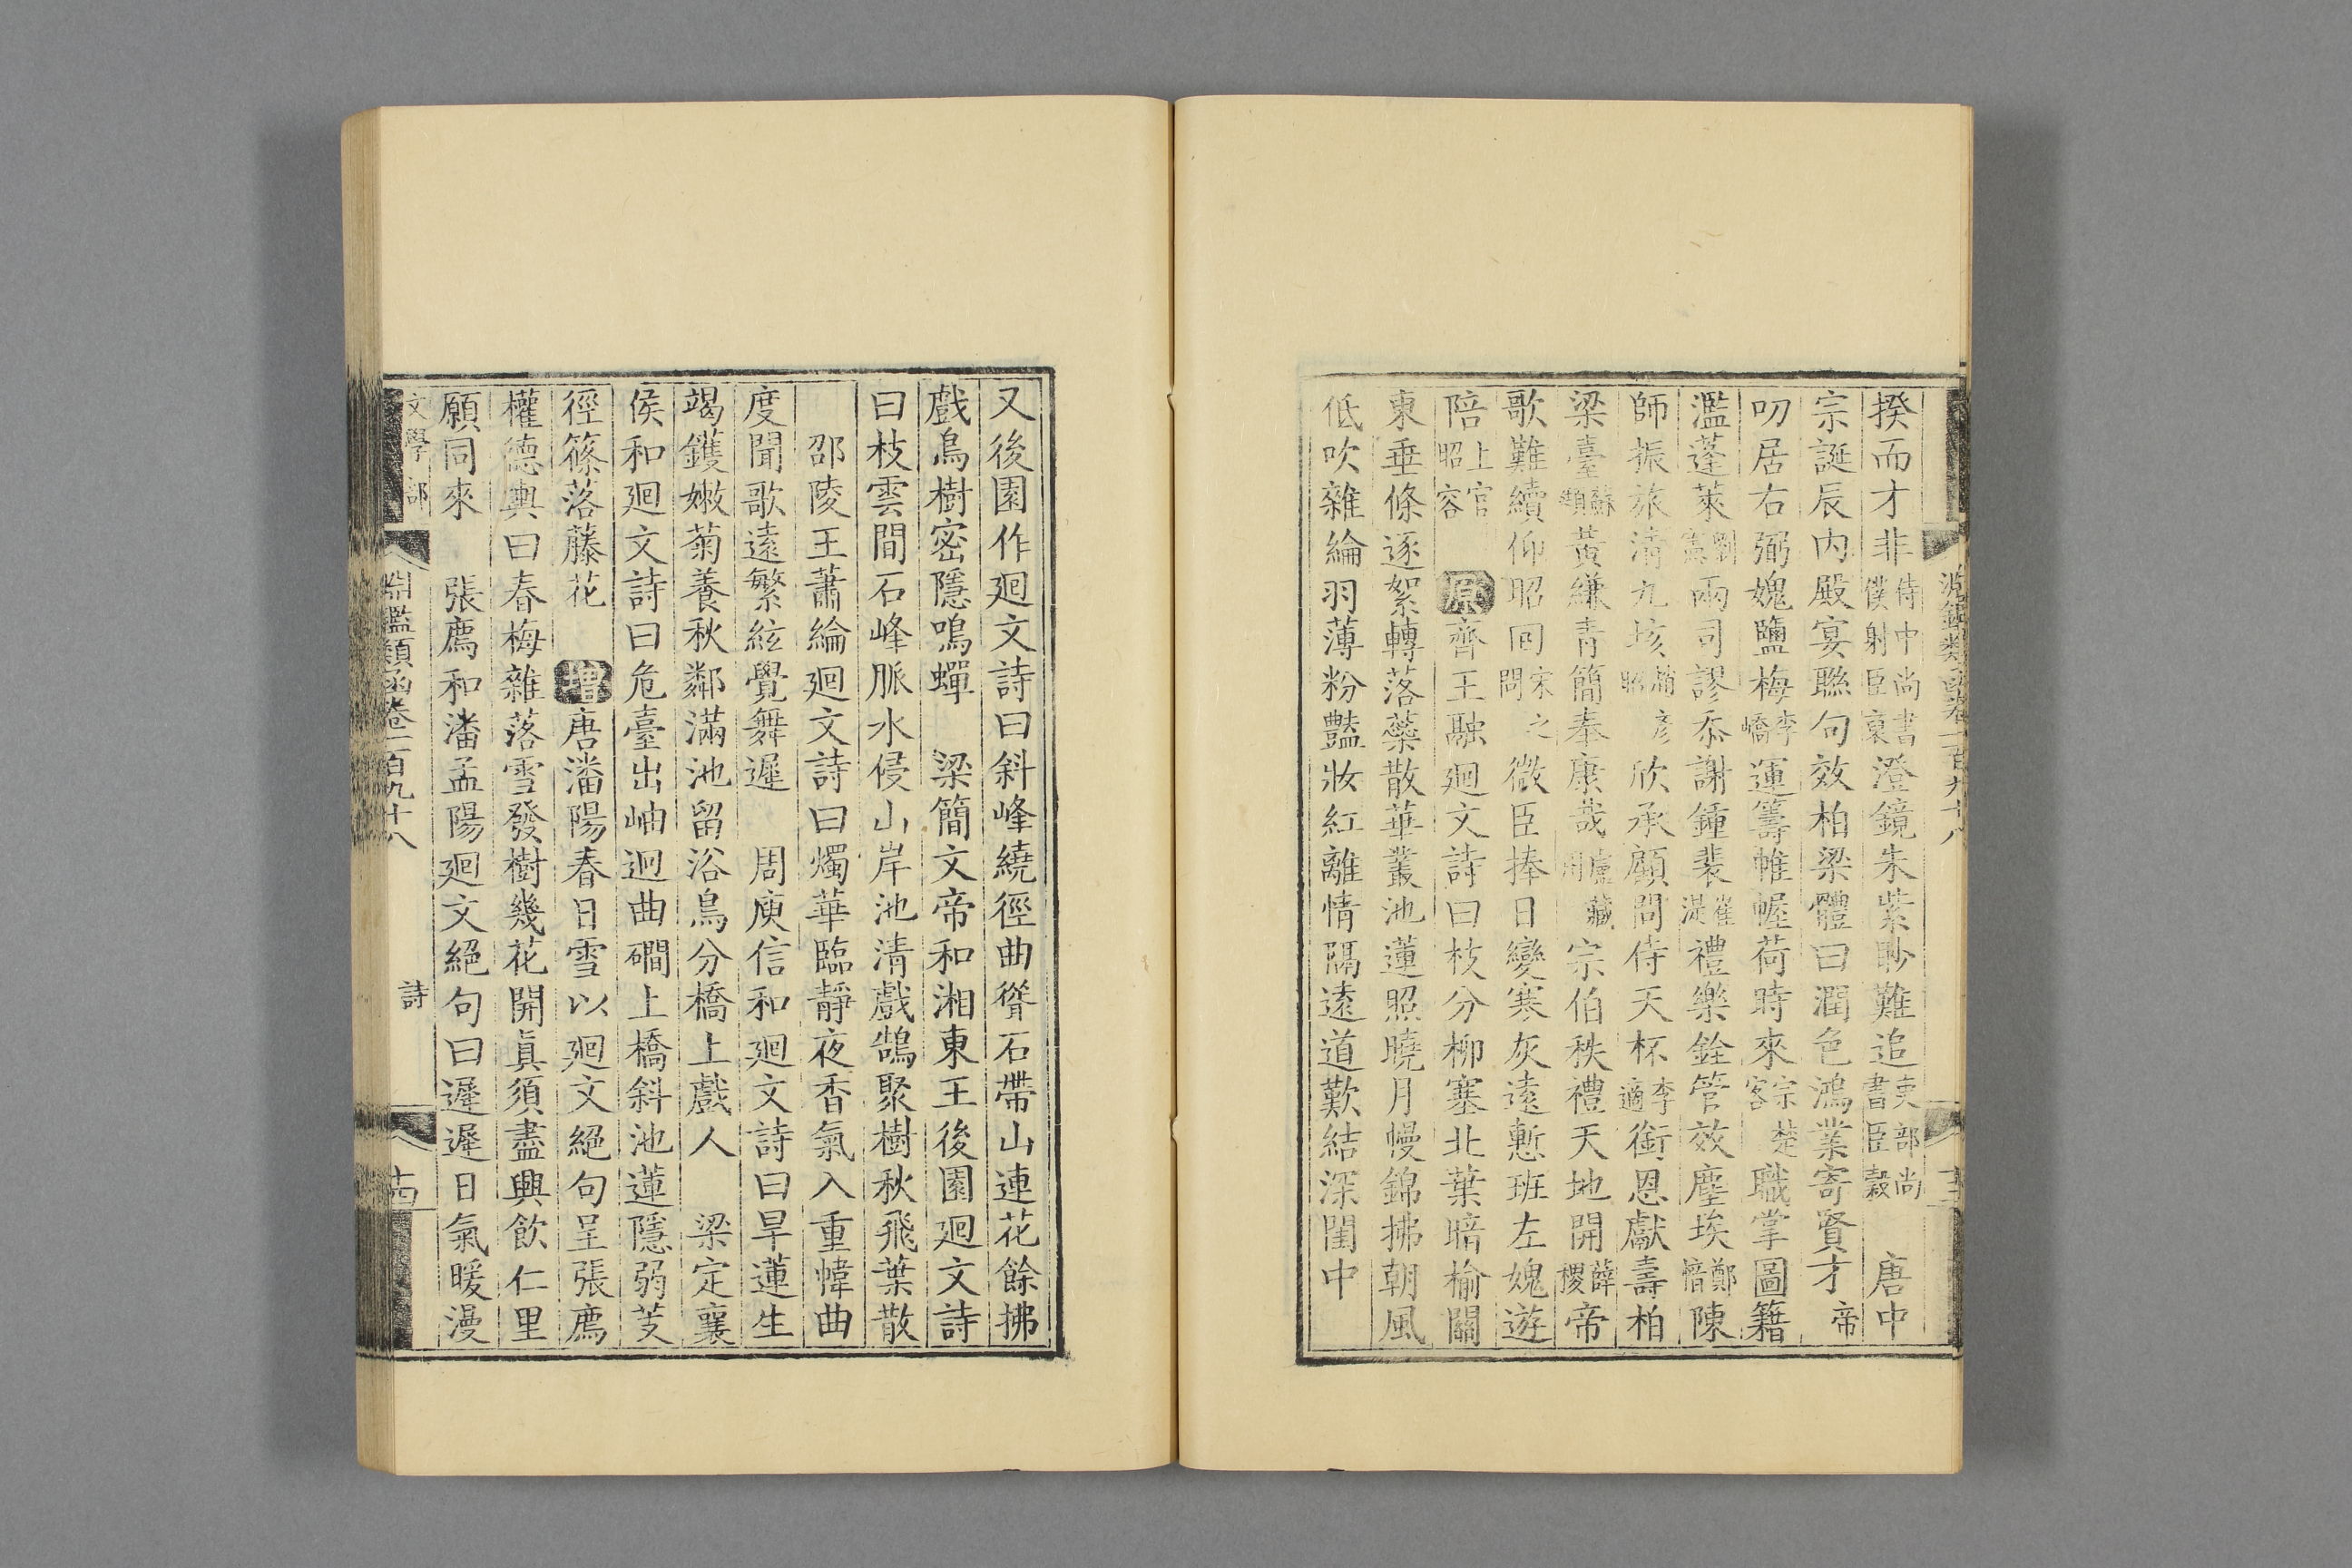 揆而才非侍中尚書僕射臣裏澄鏡朱紫眇難追吏部尚書臣穀　唐中
宗誕辰内殿宴聮句效柏梁體曰潤色鴻業寄賢才帝
叨居右弼媿鹽梅李嶠運籌帷幄荷時來宗楚客職掌圖籍
濫蓬萊劉憲兩司謬忝謝鍾裴崔湜禮樂銓管效塵埃鄭愔陳
師振旅清九垓趙彥昭欣承顧問侍天杯李適銜恩獻壽柏
梁臺蘇頲黃縑青簡奉康哉盧藏用宗伯秩禮天地開薛稷帝
歌難續仰昭回宋之問微臣捧日變寒灰遠慙班左媿遊
陪上官昭容　原齊王融廻文詩曰枝分柳塞北葉暗榆關
東垂條逐絮轉落蘂散華叢池蓮照曉月幔錦拂朝風
低吹雜綸羽薄粉豔妝紅離情隔遠道歎結深閨中
又後園作廻文詩曰斜峰繞徑曲聳石帶山連花餘拂
戲鳥樹密隱鳴蟬　梁簡文帝和湘東王後園廻文詩
曰枝雲間石峰脈水侵山岸池清戲鵠聚樹秋飛葉散
邵陵王蕭綸廻文詩曰燭華臨靜夜香氣入重幃曲
度聞歌遠繁絃覺舞遲　周庾信和廻文詩曰旱蓮生
竭鑊嫩菊養秋鄰滿池留浴鳥分橋上戲人　梁定襄
侯和廻文詩曰危臺出岫迥曲磵上橋斜池蓮隱弱芰
徑篠落藤花　增唐潘陽春日雪以廻文絕句呈張薦
權德輿曰春梅雜落雪發樹幾花開眞須盡興飲仁里
願同來　張薦和潘孟陽廻文絕句曰遲遲日氣暖漫
文學部　詩
淵鑑類函卷一百九十八　十四